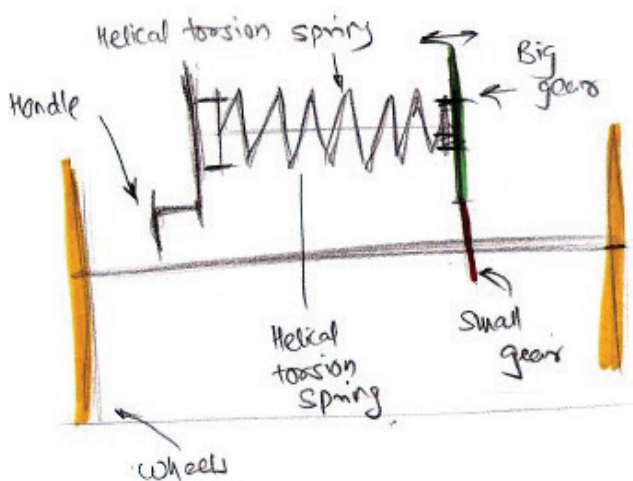 Helical torsion spring
Big
gear
Handle
Helical
torsion
spring
Small
gear
Wheels